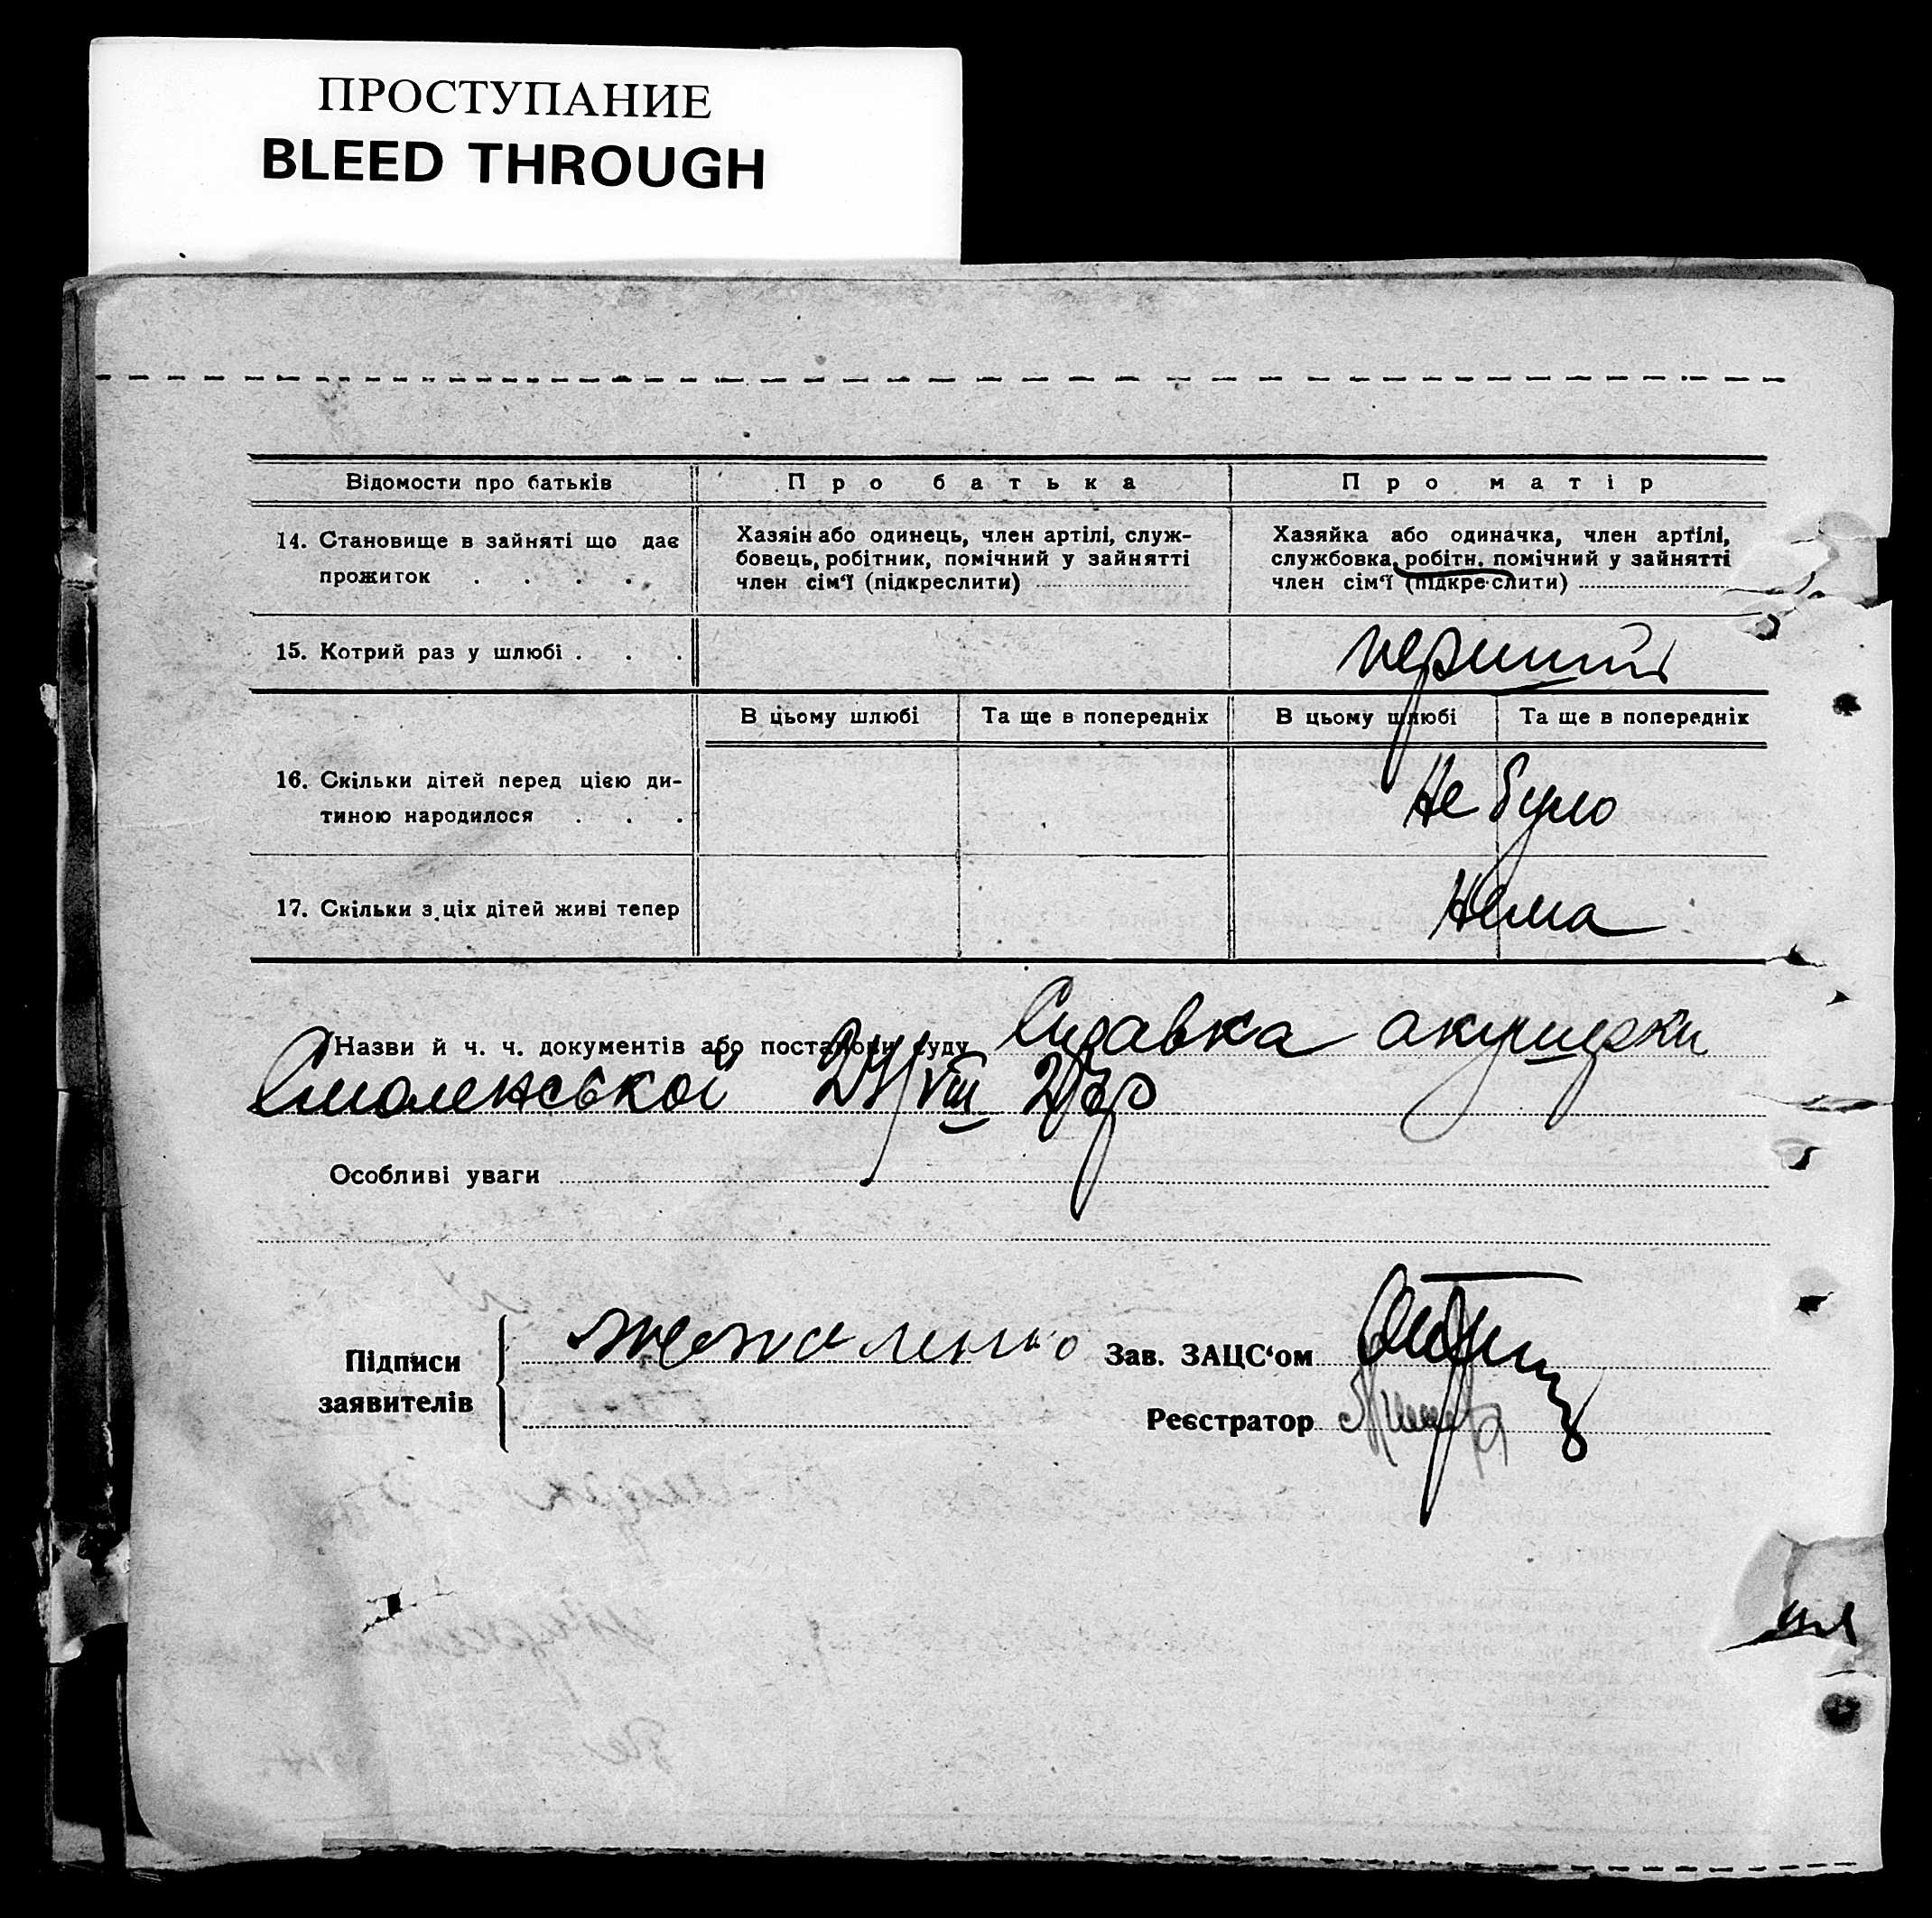 ПРОСТУПАНИЕ
BLEED THROUGH
Відомости про батьків
Про батька
Про матір
14. Становище в зайняті що дає
прожиток . . . .
Хазяін або одинець, член артілі, служ-
бовець, робітник, помічний у зайнятті
член сім'ї (підкреслити)
Хазяйка або одиначка, член артілі,
службовка, робітн. помічний у зайнятті
член сім'ї (підкреслити)
15. Котрий раз у шлюбі . . .
перший
В цьому шлюбі
Та ще в попередніх
В цьому шлюбі
Та ще в попередніх
16. Скільки дітей перед цією ди-
тиною народилося . . .
Не було
17. Скільки з ціх дітей живі тепер
Нема
Назви й ч. ч. документів або постанови суду Справка акушерки
Смоленської VIII
Особливі уваги
Підписи
заявителів
Зав. ЗАЦС‘ом
Реєстратор